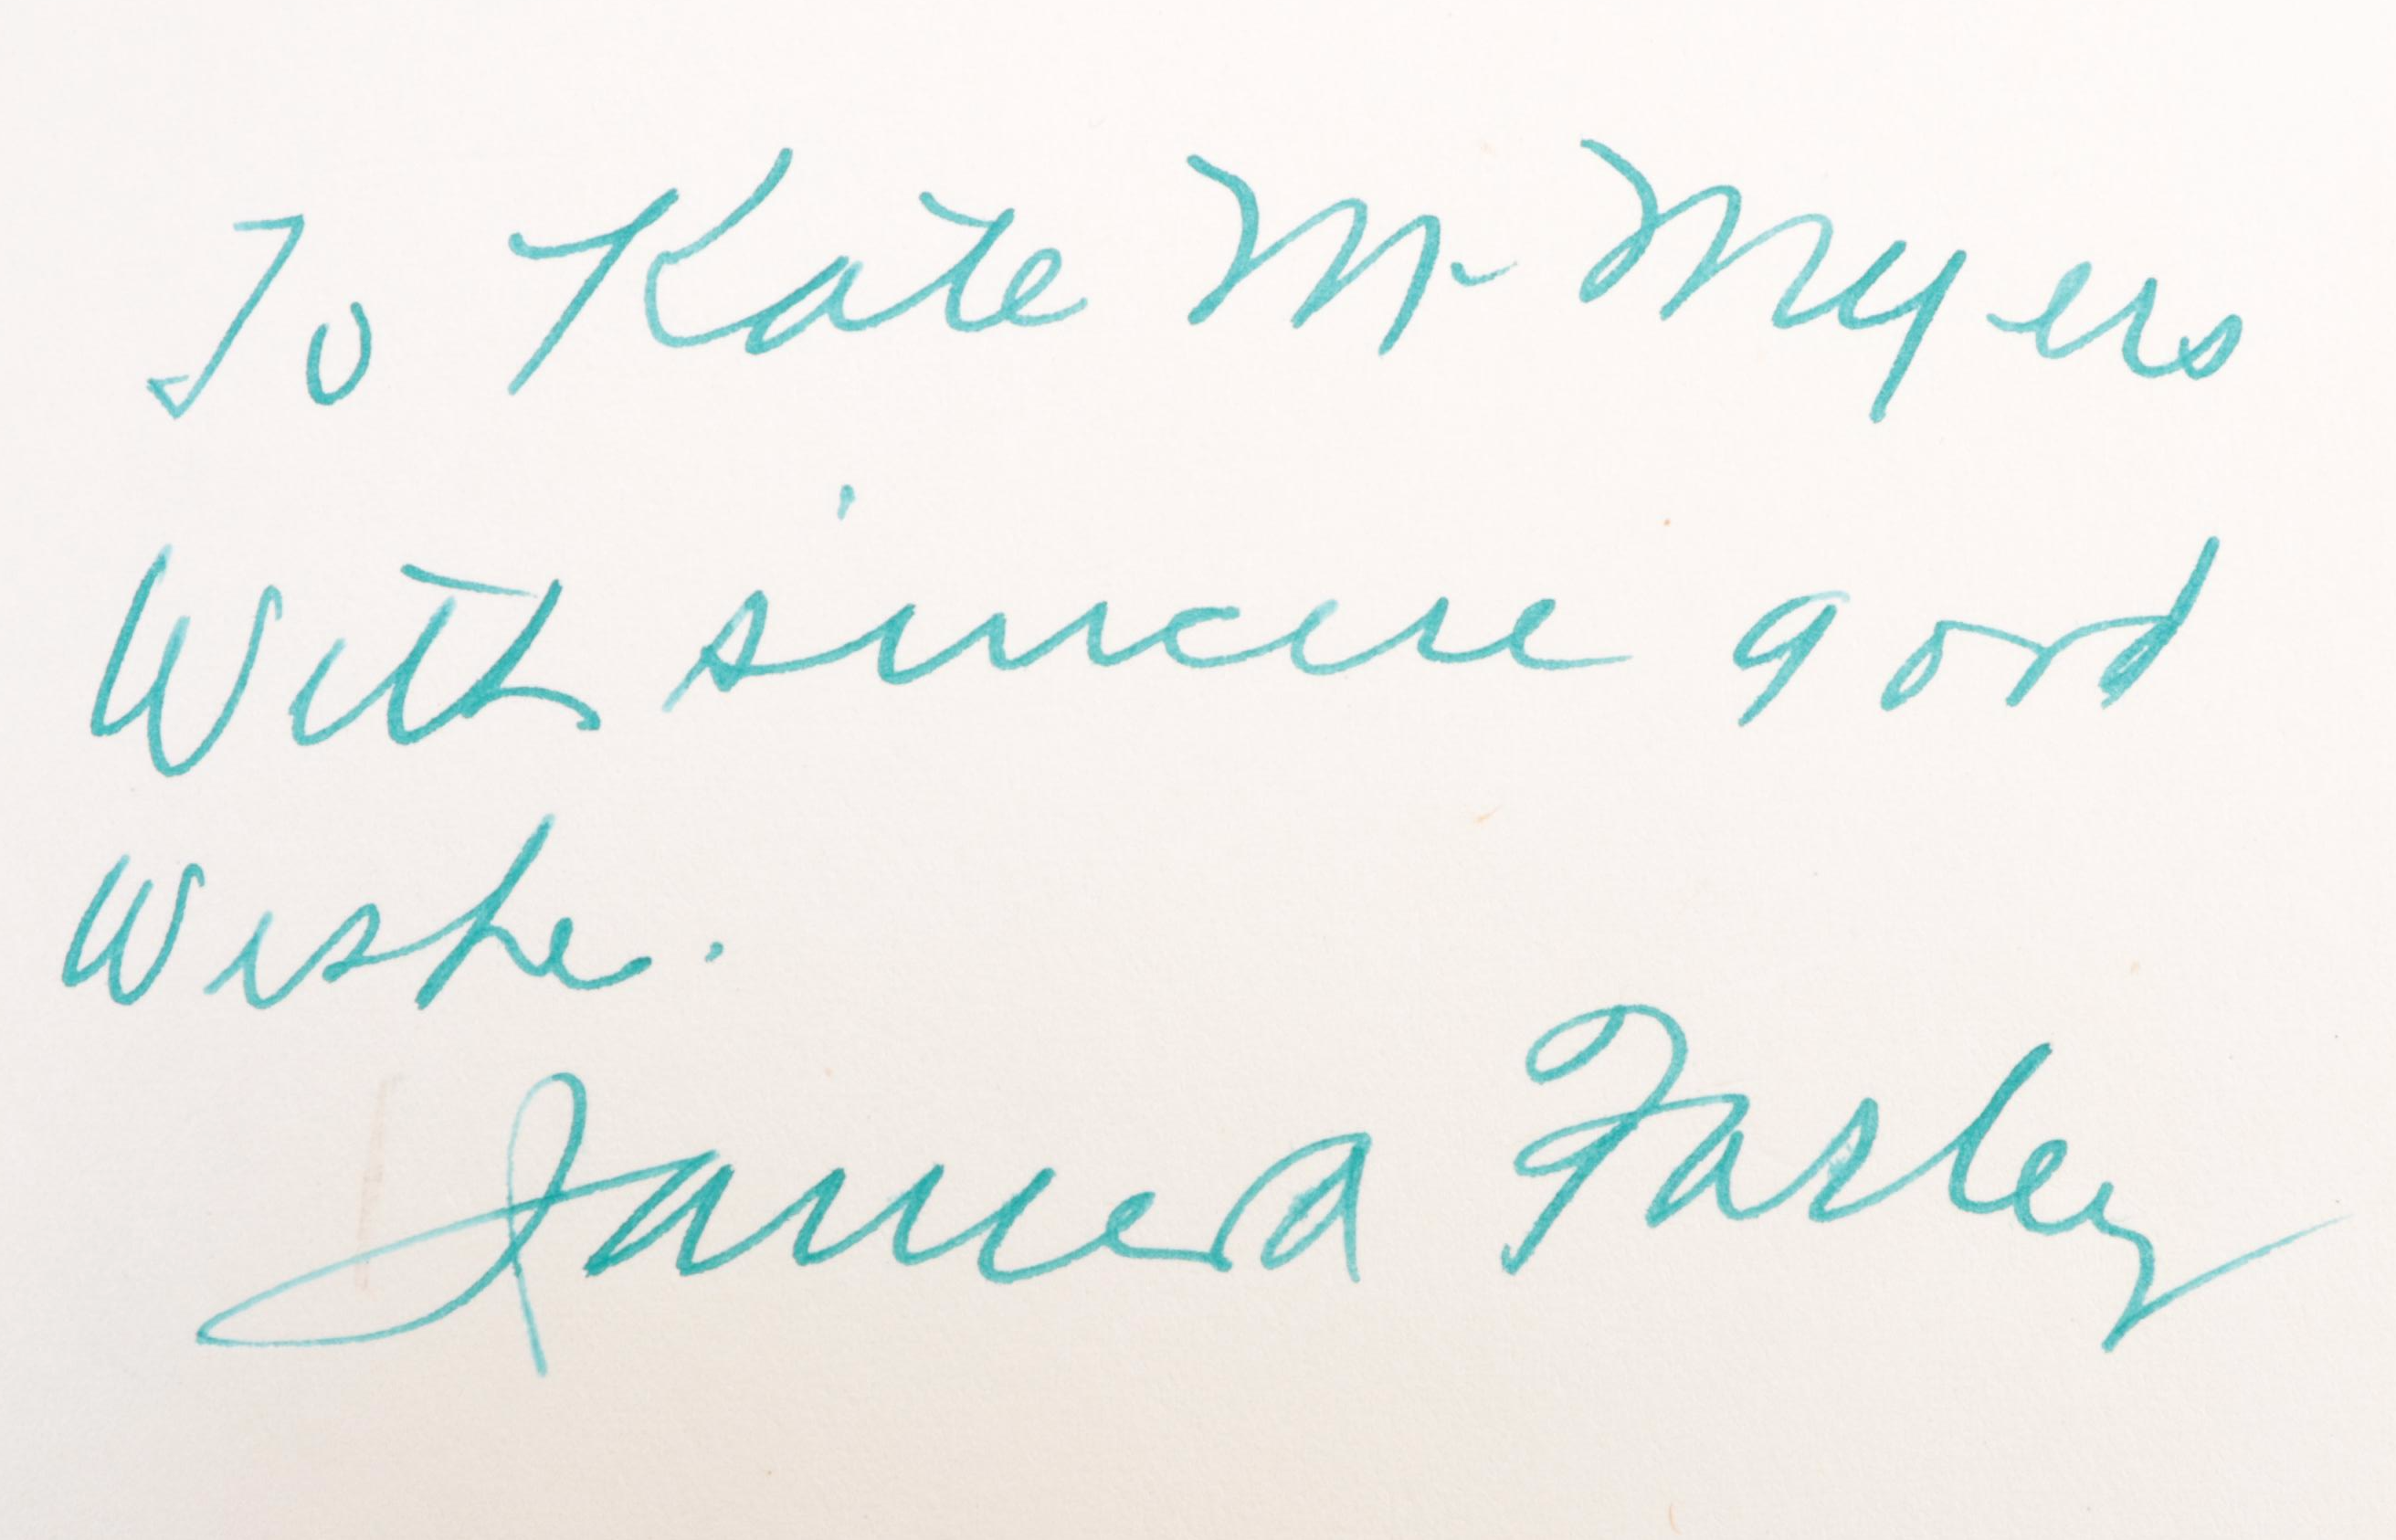 To Kate M. Myers
With sincere good
Wishes.
James A Farley